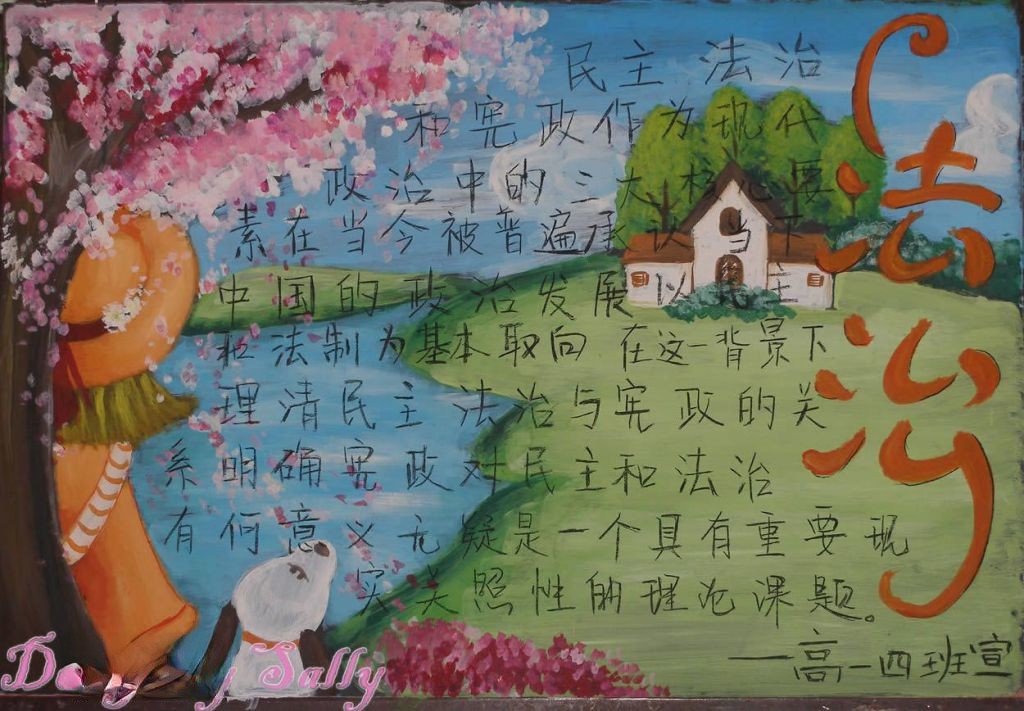 法治
民主法治
和宪政作为现代
政治中的三大核心要
素在当今被普遍承认当下
中国的政治发展以民主
和法制为基本取向在这一背景下
理清民主法治与宪政的关
系明确宪政对民主和法治
有何意义无疑是一个具有重要现
实关照性的理论课题。
——高一四班宣
Sally